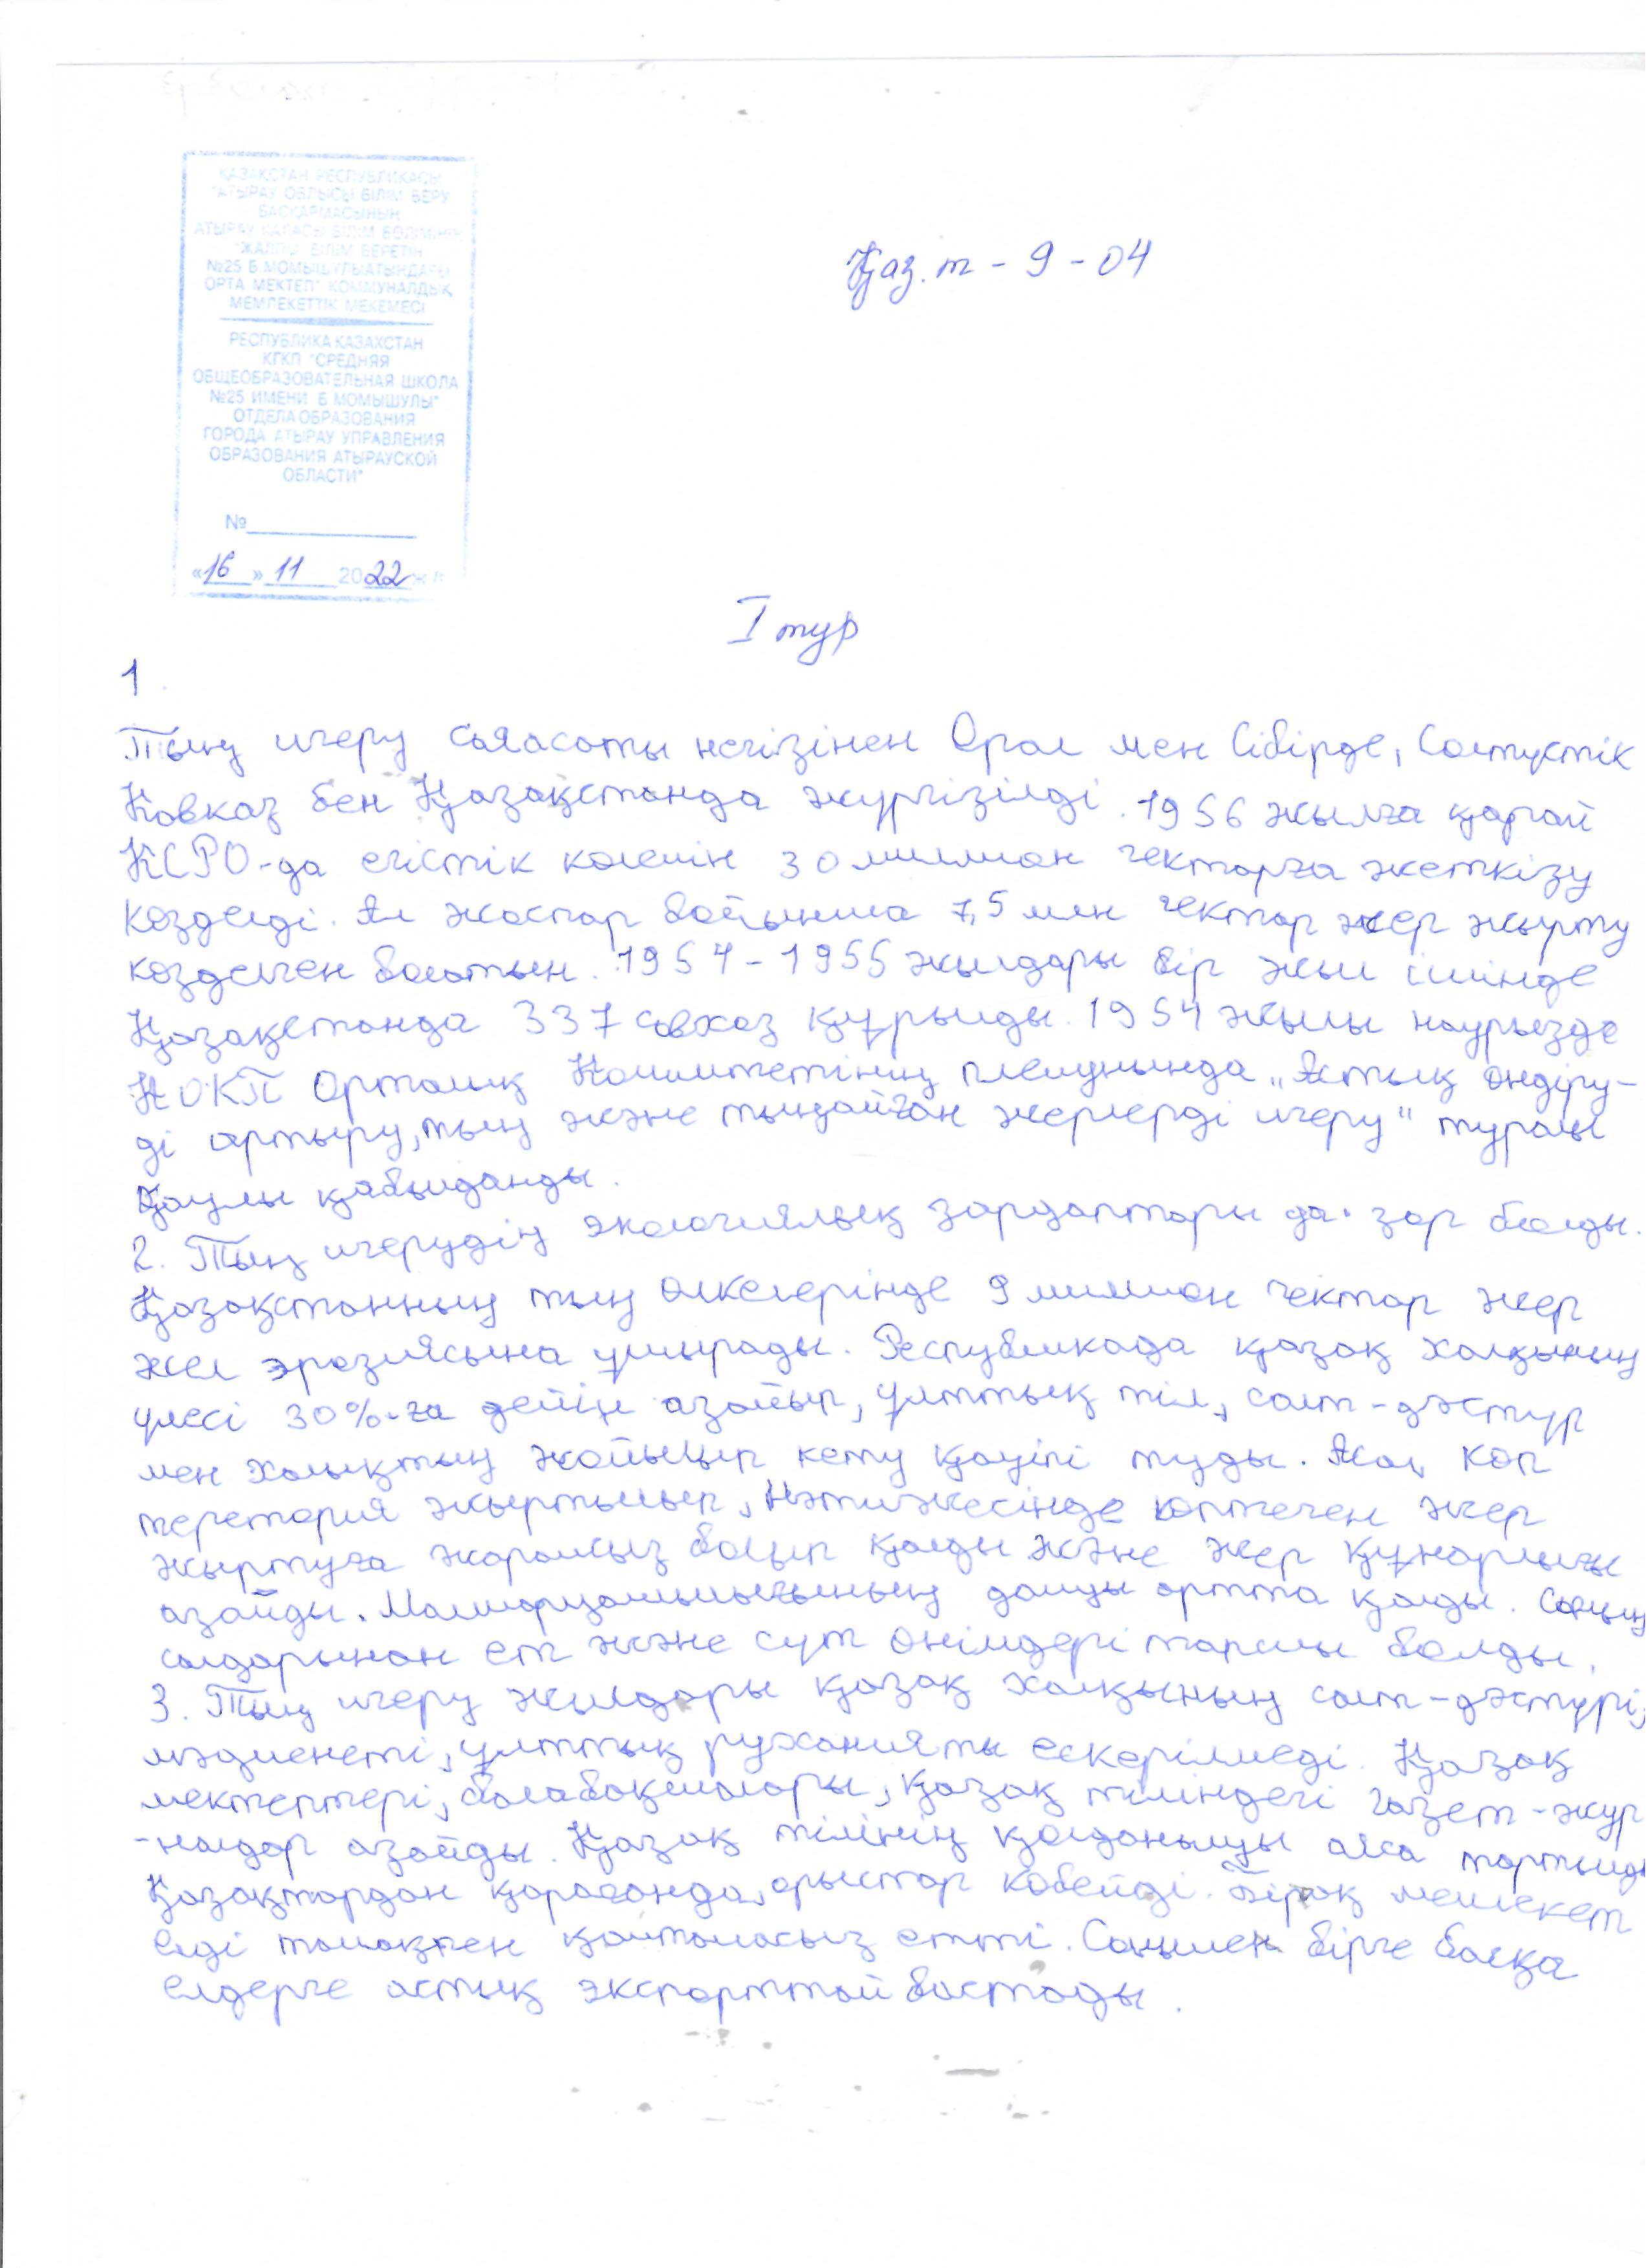 ҚАЗАҚСТАН РЕСПУБЛИКАСЫ
"АТЫРАУ ОБЛЫСЫ БІЛІМ БЕРУ
БАСҚАРМАСЫНЫҢ
АТЫРАУ ҚАЛАСЫ БІЛІМ БӨЛІМІНІҢ
"ЖАЛПЫ БІЛІМ БЕРЕТІН
№25 Б.МОМЫШҰЛЫ АТЫНДАҒЫ
ОРТА МЕКТЕП" КОММУНАЛДЫҚ
МЕМЛЕКЕТТІК МЕКЕМЕСІ
РЕСПУБЛИКА КАЗАХСТАН
КГКП "СРЕДНЯЯ
ОБЩЕОБРАЗОВАТЕЛЬНАЯ ШКОЛА
№25 ИМЕНИ Б.МОМЫШУЛЫ"
ОТДЕЛА ОБРАЗОВАНИЯ
ГОРОДА АТЫРАУ УПРАВЛЕНИЯ
ОБРАЗОВАНИЯ АТЫРАУСКОЙ
ОБЛАСТИ"
№
«16» 11 2022 ж/г
Қаз.т - 9 - 04
I тур
1
Тың игеру саясаты негізінен Орал мен Сібірде, Солтүстік
Кавказ бен Қазақстанда жүргізілді. 1956 жылға қарай
КСРО-да егістік көлемін 30 миллион гектарға жеткізу
көзделді. Ал жоспар бойынша 7,5 млн гектар жер жырту
көзделген болатын. 1954-1955 жылдары бір жыл ішінде
Қазақстанда 337 совхоз құрылды. 1954 жылы наурызда
КОКП Орталық Комитетінің пленумында „Астық өндіру-
ді арттыру, тың және тыңайған жерлерді игеру" туралы
Қаулы қабылданды.
2. Тың игерудің экологиялық зардаптары да зор болды.
Қазақстанның тың өлкелерінде 9 миллион гектар жер
жел эрозиясына ұшырады. Республикада қазақ халқының
үлесі 30%-ға дейін азайып, ұлттық тіл, салт-дәстүр
мен халықтың жойылып кету қаупі туды. Аса көп
теретория жыртылып, нәтижесінде көптеген жер
жыртуға жарамсыз болып қалды және жер құнарлығы
азайды. Малшаруашылығының дамуы артта қалды. Соның
салдарынан ет және сүт өнімдері тапшы болды.
3. Тың игеру жылдары қазақ халқының салт-дәстүрі,
мәдиенеті, ұлттық руханияты ескерілмеді. Қазақ
мектептері, балабақшалары, қазақ тіліндегі газет-жур
-налдар азайды. Қазақ тілінің қолданылуы аса тартылды
Қазақтардан қарағанда, орыстар көбейді. Бірақ мемлекет
елді тамақпен қамтамасыз етті. Сонымен бірге басқа
елдерге астық экспорттай бастады.